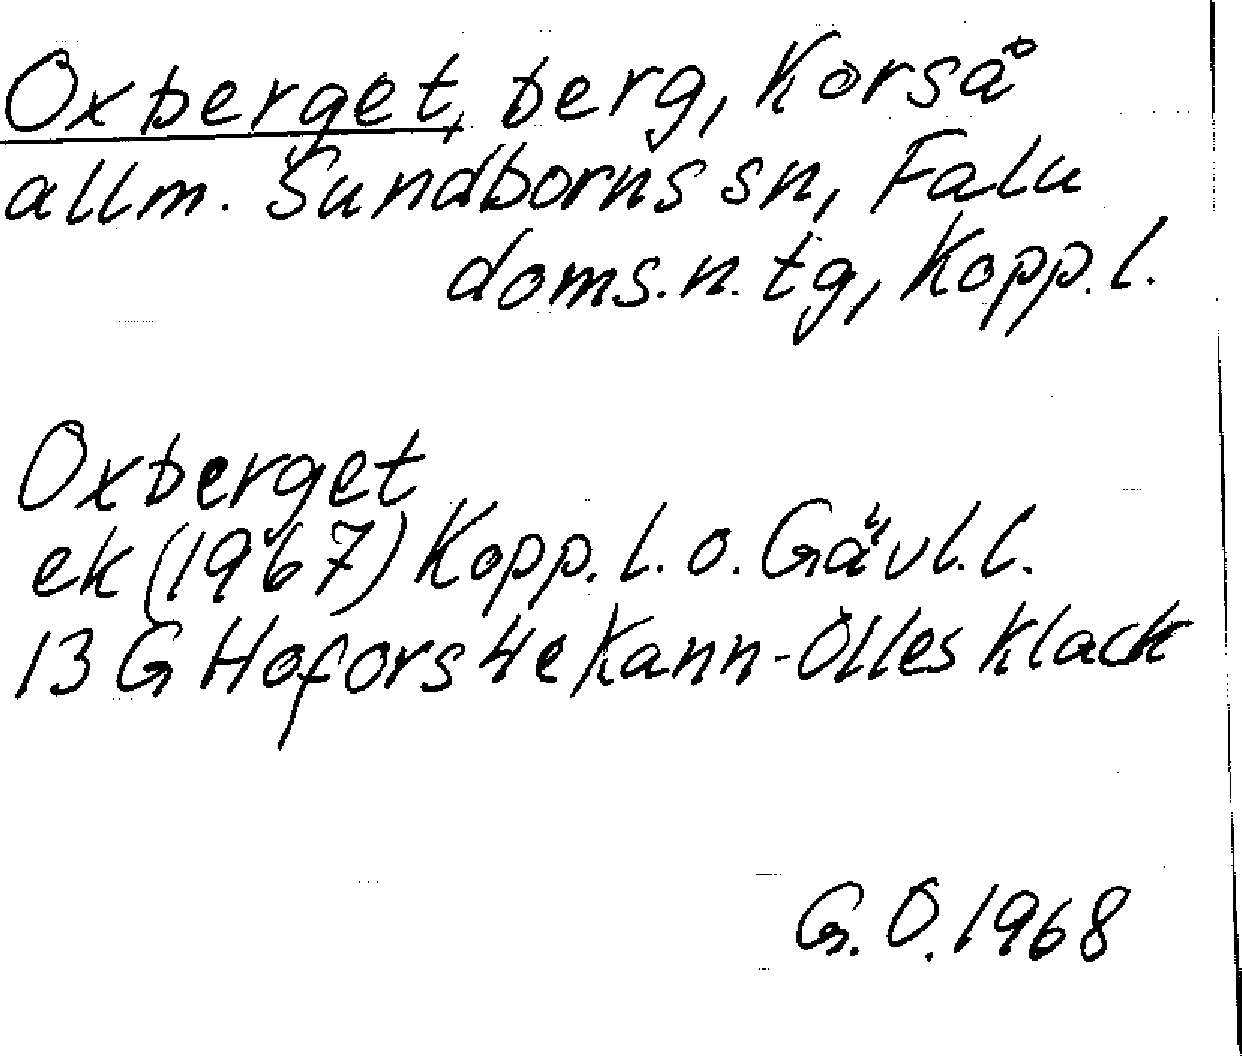 Oxberget, berg, Korså
allm. Sundborns sn, Falu
doms.n. tg, Kopp.l.
Oxberget
ek (1967) Kopp. l. o. Gävl.l.
13 G Hofors 4e Kann-Olles Klack
G.O. 1968